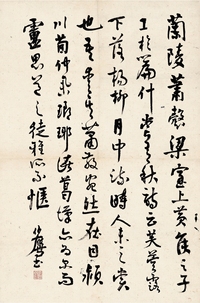 蘭陵蕭愨梁室上黃侯之子
工於篇什嘗有秋詩云芙蓉露
下落楊柳月中疎時人未之賞
也吾愛其蕭散宛然在目潁
川荀仲舉琅琊諸葛漢亦以為爾
盧思道之徒雅所不愜